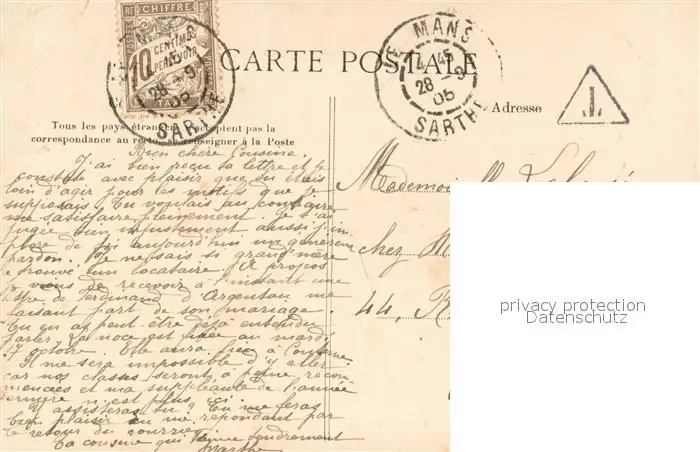 CHIFFRE
10
CENTIMES
A PERCEVOIR
LE MANS
28 - 9
05
SARTHE
CARTE POSTALE
LE MANS
14 45
28 - 9
05
SARTHE
T
Adresse
Tous les pays étrangers n'acceptent pas la
correspondance au recto se renseigner à la Poste
Bien chère Cousine,
J'ai bien reçu ta lettre et je
constate avec plaisir que tu étais
loin d'agir pour les motifs que je
supposais. Tu voulais au contraire
me satisfaire pleinement. Je t'ai
jugée bien injustement aussi j'im
plore de toi aujourd'hui un généreux
pardon. Je ne sais si grand'mère
a trouvé un locataire. A propos
je viens de recevoir à l'instant une
lettre de Ferdinand d'Argentan me
faisant part de son mariage.
Tu en as peut-être déjà entendu
parler. La noce est fixée au mardi
17 octobre. Elle aura lieu à
Il me sera impossible d'y aller
car nos classes seront à peine recom
mencées et ma suppléante de l'année
dernière n'est plus ici.
Y assisteras-tu? Tu me feras
bien plaisir en me répondant par
le retour du courrier.
Ta cousine qui t'aime tendrement
Marthe
Mademoiselle
chez M
44, R
privacy protection
Datenschutz